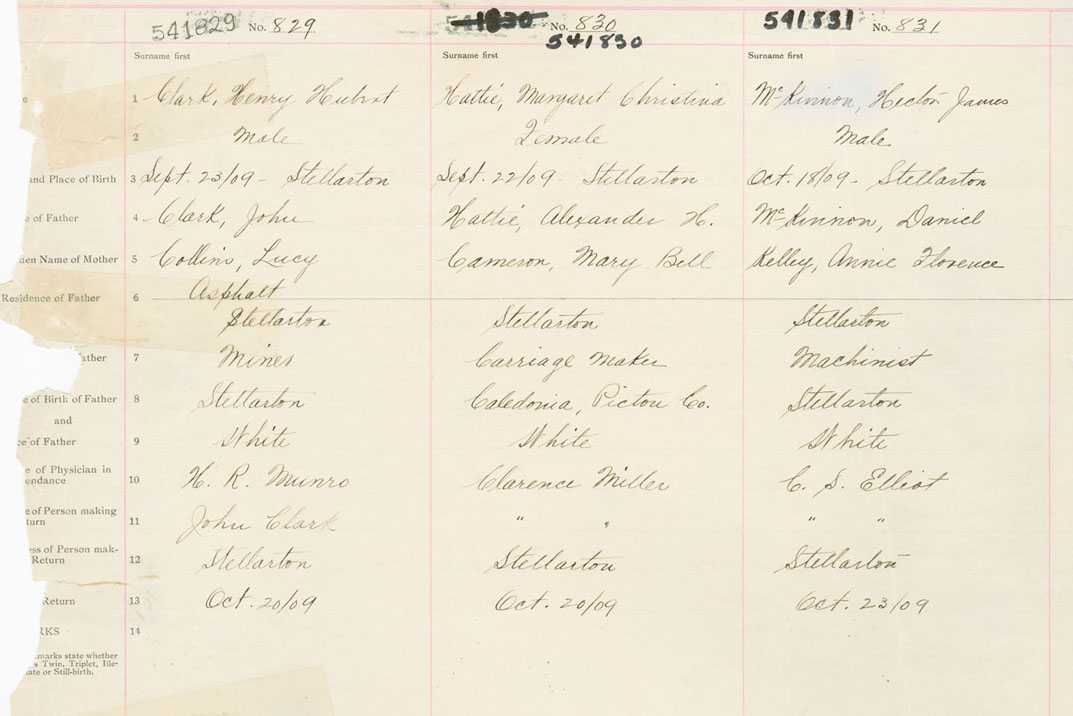 541829 No. 829 1830 No. 830 541831 No. 831
541830
Surname first Surname first Surname first
1 Clark, Henry Hubert Hattie, Margaret Christina McKinnon, Hector James
2 Male Female Male
and Place of Birth 3 Sept. 23/09 - Stellarton Sept. 22/09 - Stellarton Oct. 18/09 - Stellarton
e of Father 4 Clark, John Hattie, Alexander H. McKinnon, Daniel
den Name of Mother 5 Collins, Lucy Cameron, Mary Bell Kelley, Annie Florence
Asphalt
Residence of Father 6
Stellarton Stellarton Stellarton
ather 7 Mines Carriage Maker Machinist
e of Birth of Father 8 Stellarton Caledonia, Pictou Co. Stellarton
and
ce of Father 9 White White White
e of Physician in
endance 10 H. R. Munro Clarence Miller C. S. Elliot
e of Person making
turn 11 John Clark " " " "
ess of Person mak-
Return 12 Stellarton Stellarton Stellarton
Return 13 Oct. 20/09 Oct. 20/09 Oct. 23/09
RKS 14
marks state whether
s Twin, Triplet, Ille-
ate or Still-birth.